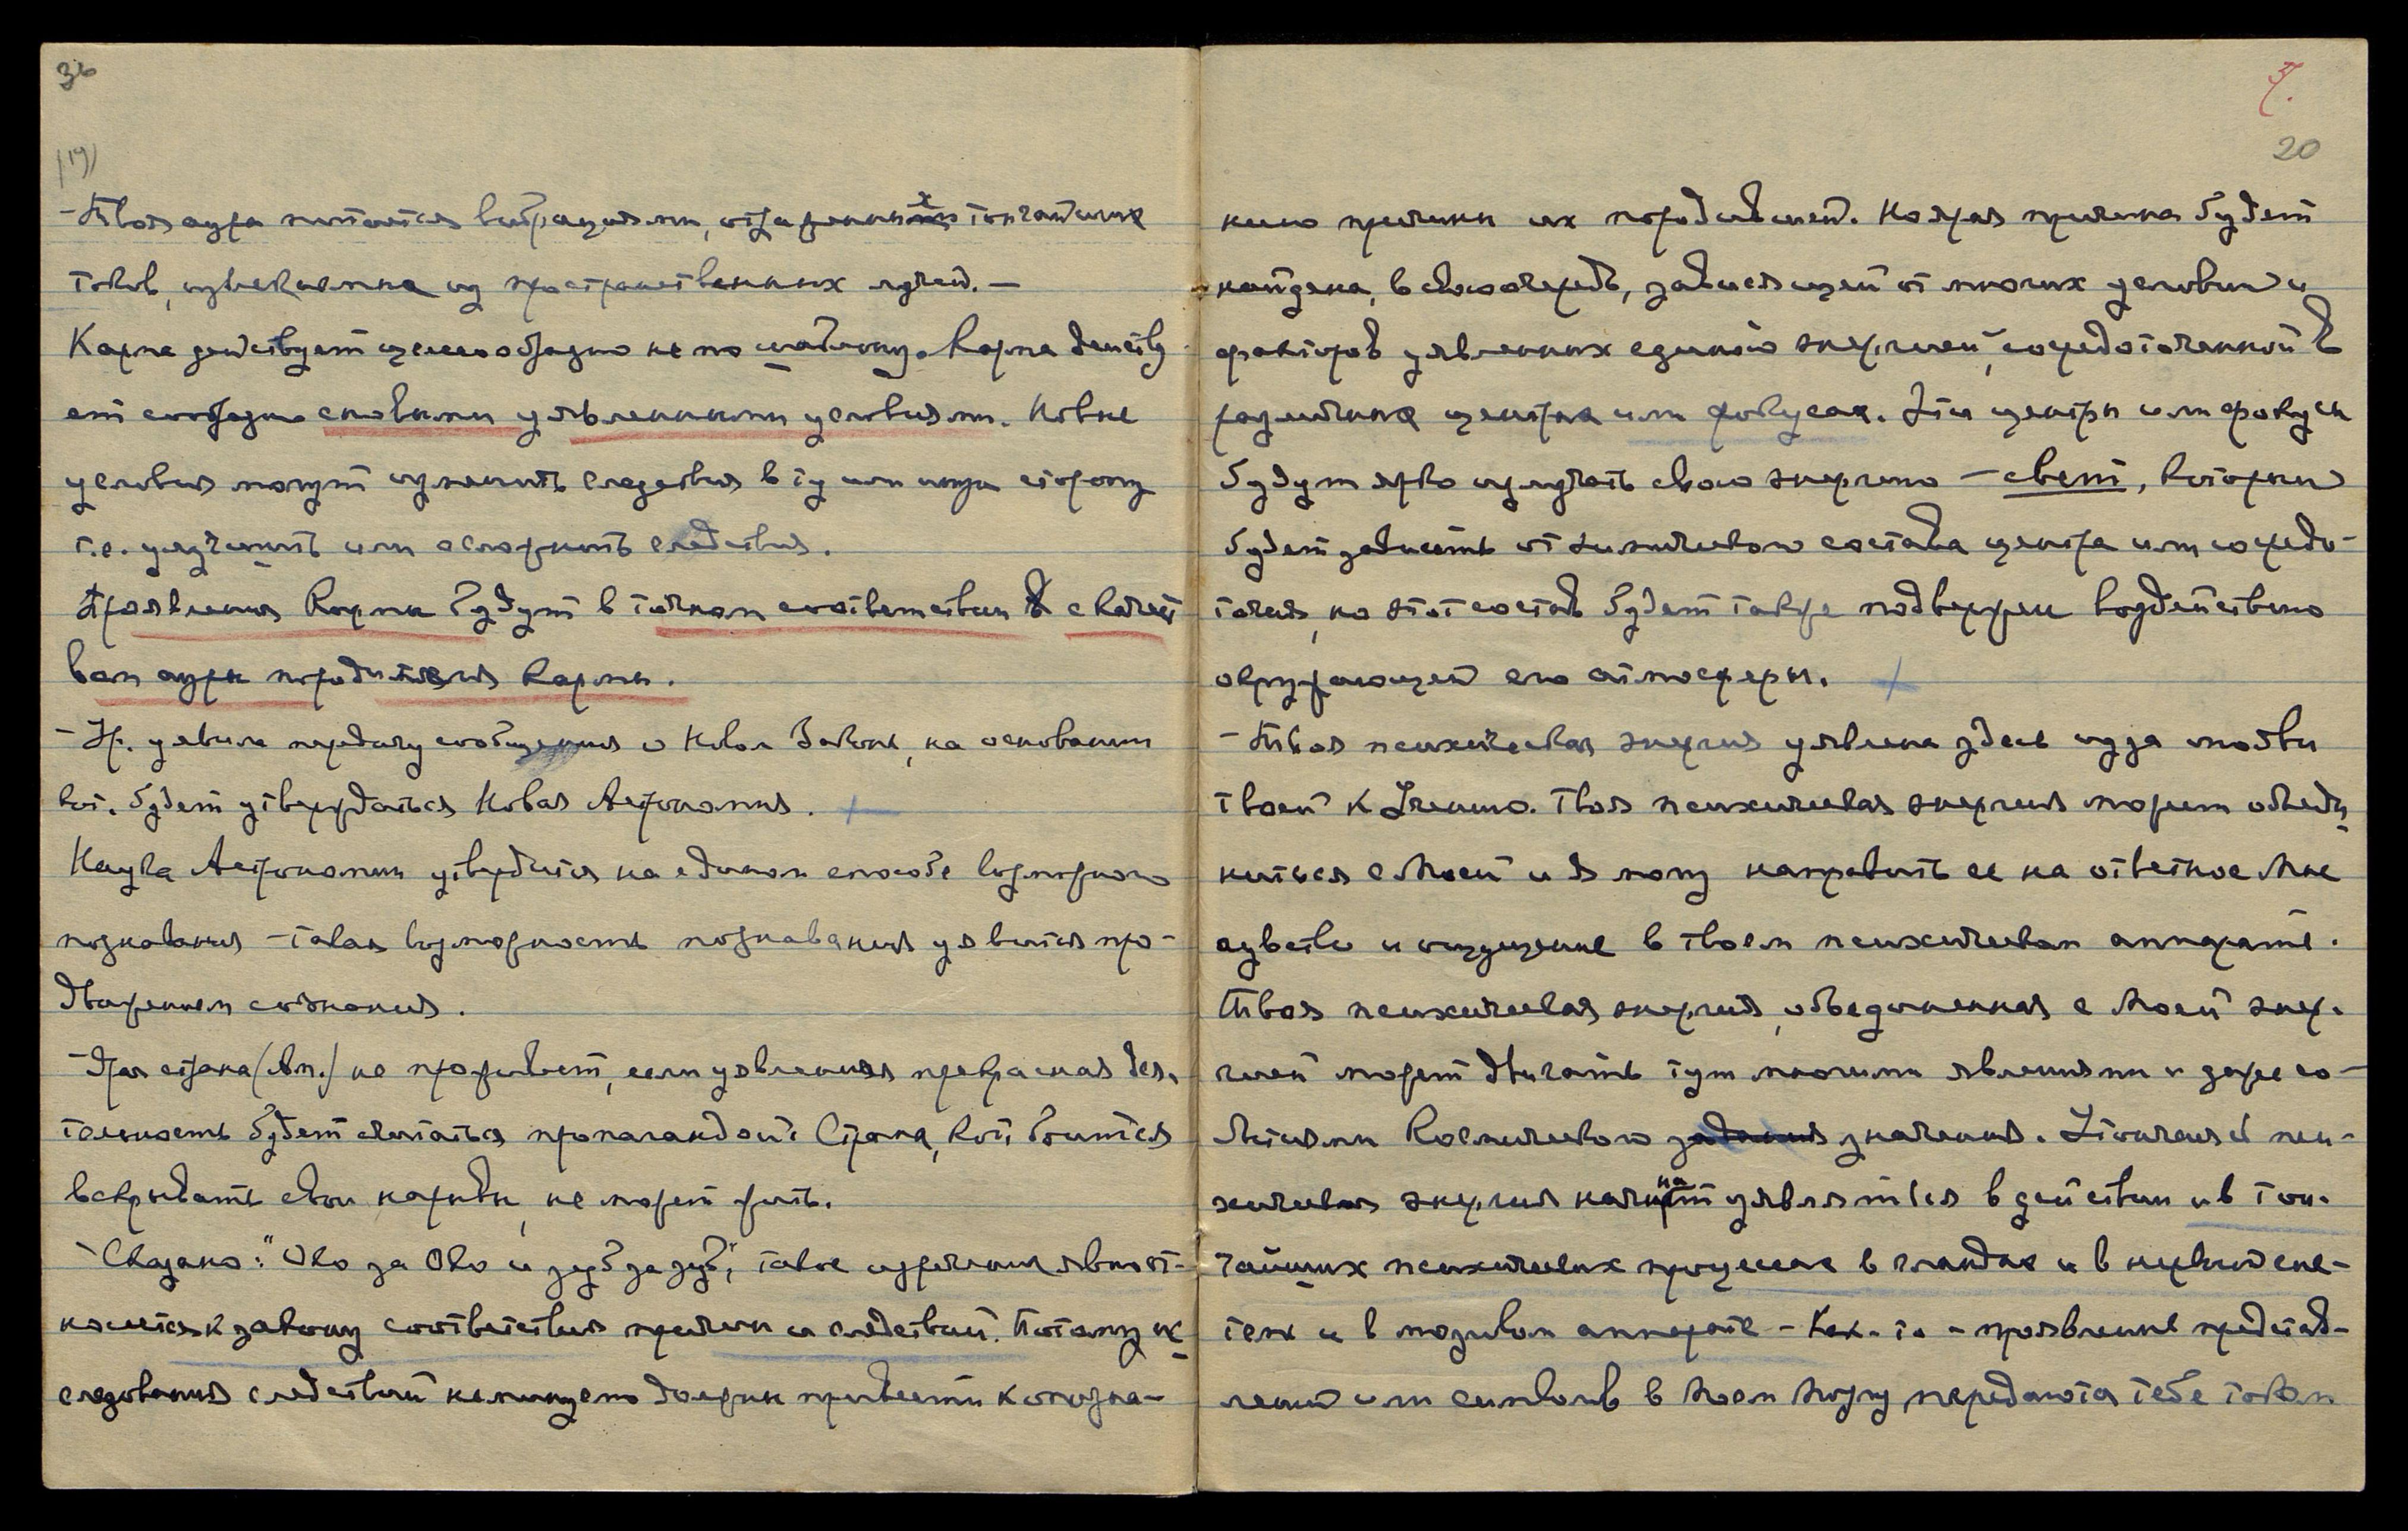 36
(19)
- Твоя аура питается вибрациями, отражениях тончайших
токов, извлекаемых из пространственных лучей. —
Карма действует целесообразно не по шаблону. Карма действу
ет сообразно с новыми уявленными условиями. Новые
условия могут изменить следствия в ту или иную сторону
т.е. улучшить или осложнить следствия.
Проявления Кармы будут в точном соответствии с качест
вом ауры породителя Кармы.
- Ур. уявила передачу сообщения о Новом Законе, на основании
кот. будет утверждаться Новая Астрономия.
Наука Астрономии утвердится на едином способе возможного
познавания - такая возможность познавания уявится про-
движением сознания.
- Эта страна (Ам.) не проживет, если уявленная прекрасная дея-
тельность будет считаться пропагандой. Страна, кот. боится
вскрывать свои нарывы, не может жить.
- Сказано: "Око за Око и зуб за зуб", такое изречение явно от-
носится к закону соответствия причин и следствий. Потому ис
следования следствий неминуемо должны привести к опозна-
7.
20
нию причины их породившей. Но эта причина будет
найдена, в свою очередь, зависящей от многих условий и
факторов уявленных единой энергией, сосредоточенной в
различных центрах или фокусах. Эти центры или фокусы
будут ярко излучать свою энергию - свет, который
будет зависеть от химического состава центра или сосредо-
точия, но этот состав будет также подвержен воздействию
окружающей его атмосферы.
- Твоя психическая энергия уявлена здесь из за любви
твоей к Учению. Твоя психическая энергия может объеди
ниться с Моей и Я могу направить ее на ответное Мне
чувство и ощущение в твоем психическом аппарате.
Твоя психическая энергия, объединенная с Моей энер-
гией может двигать тут многими явлениями и даже со-
бытиями Космического задания значения. Утончен. пси-
хическая энергия начнет уявляться в действии и в тон-
чайших психических процессах в гландах и в нервной сис-
теме и в мозговом аппарате - Как-то - проявление представ-
лений или символов в Моем Мозгу передаются тебе током